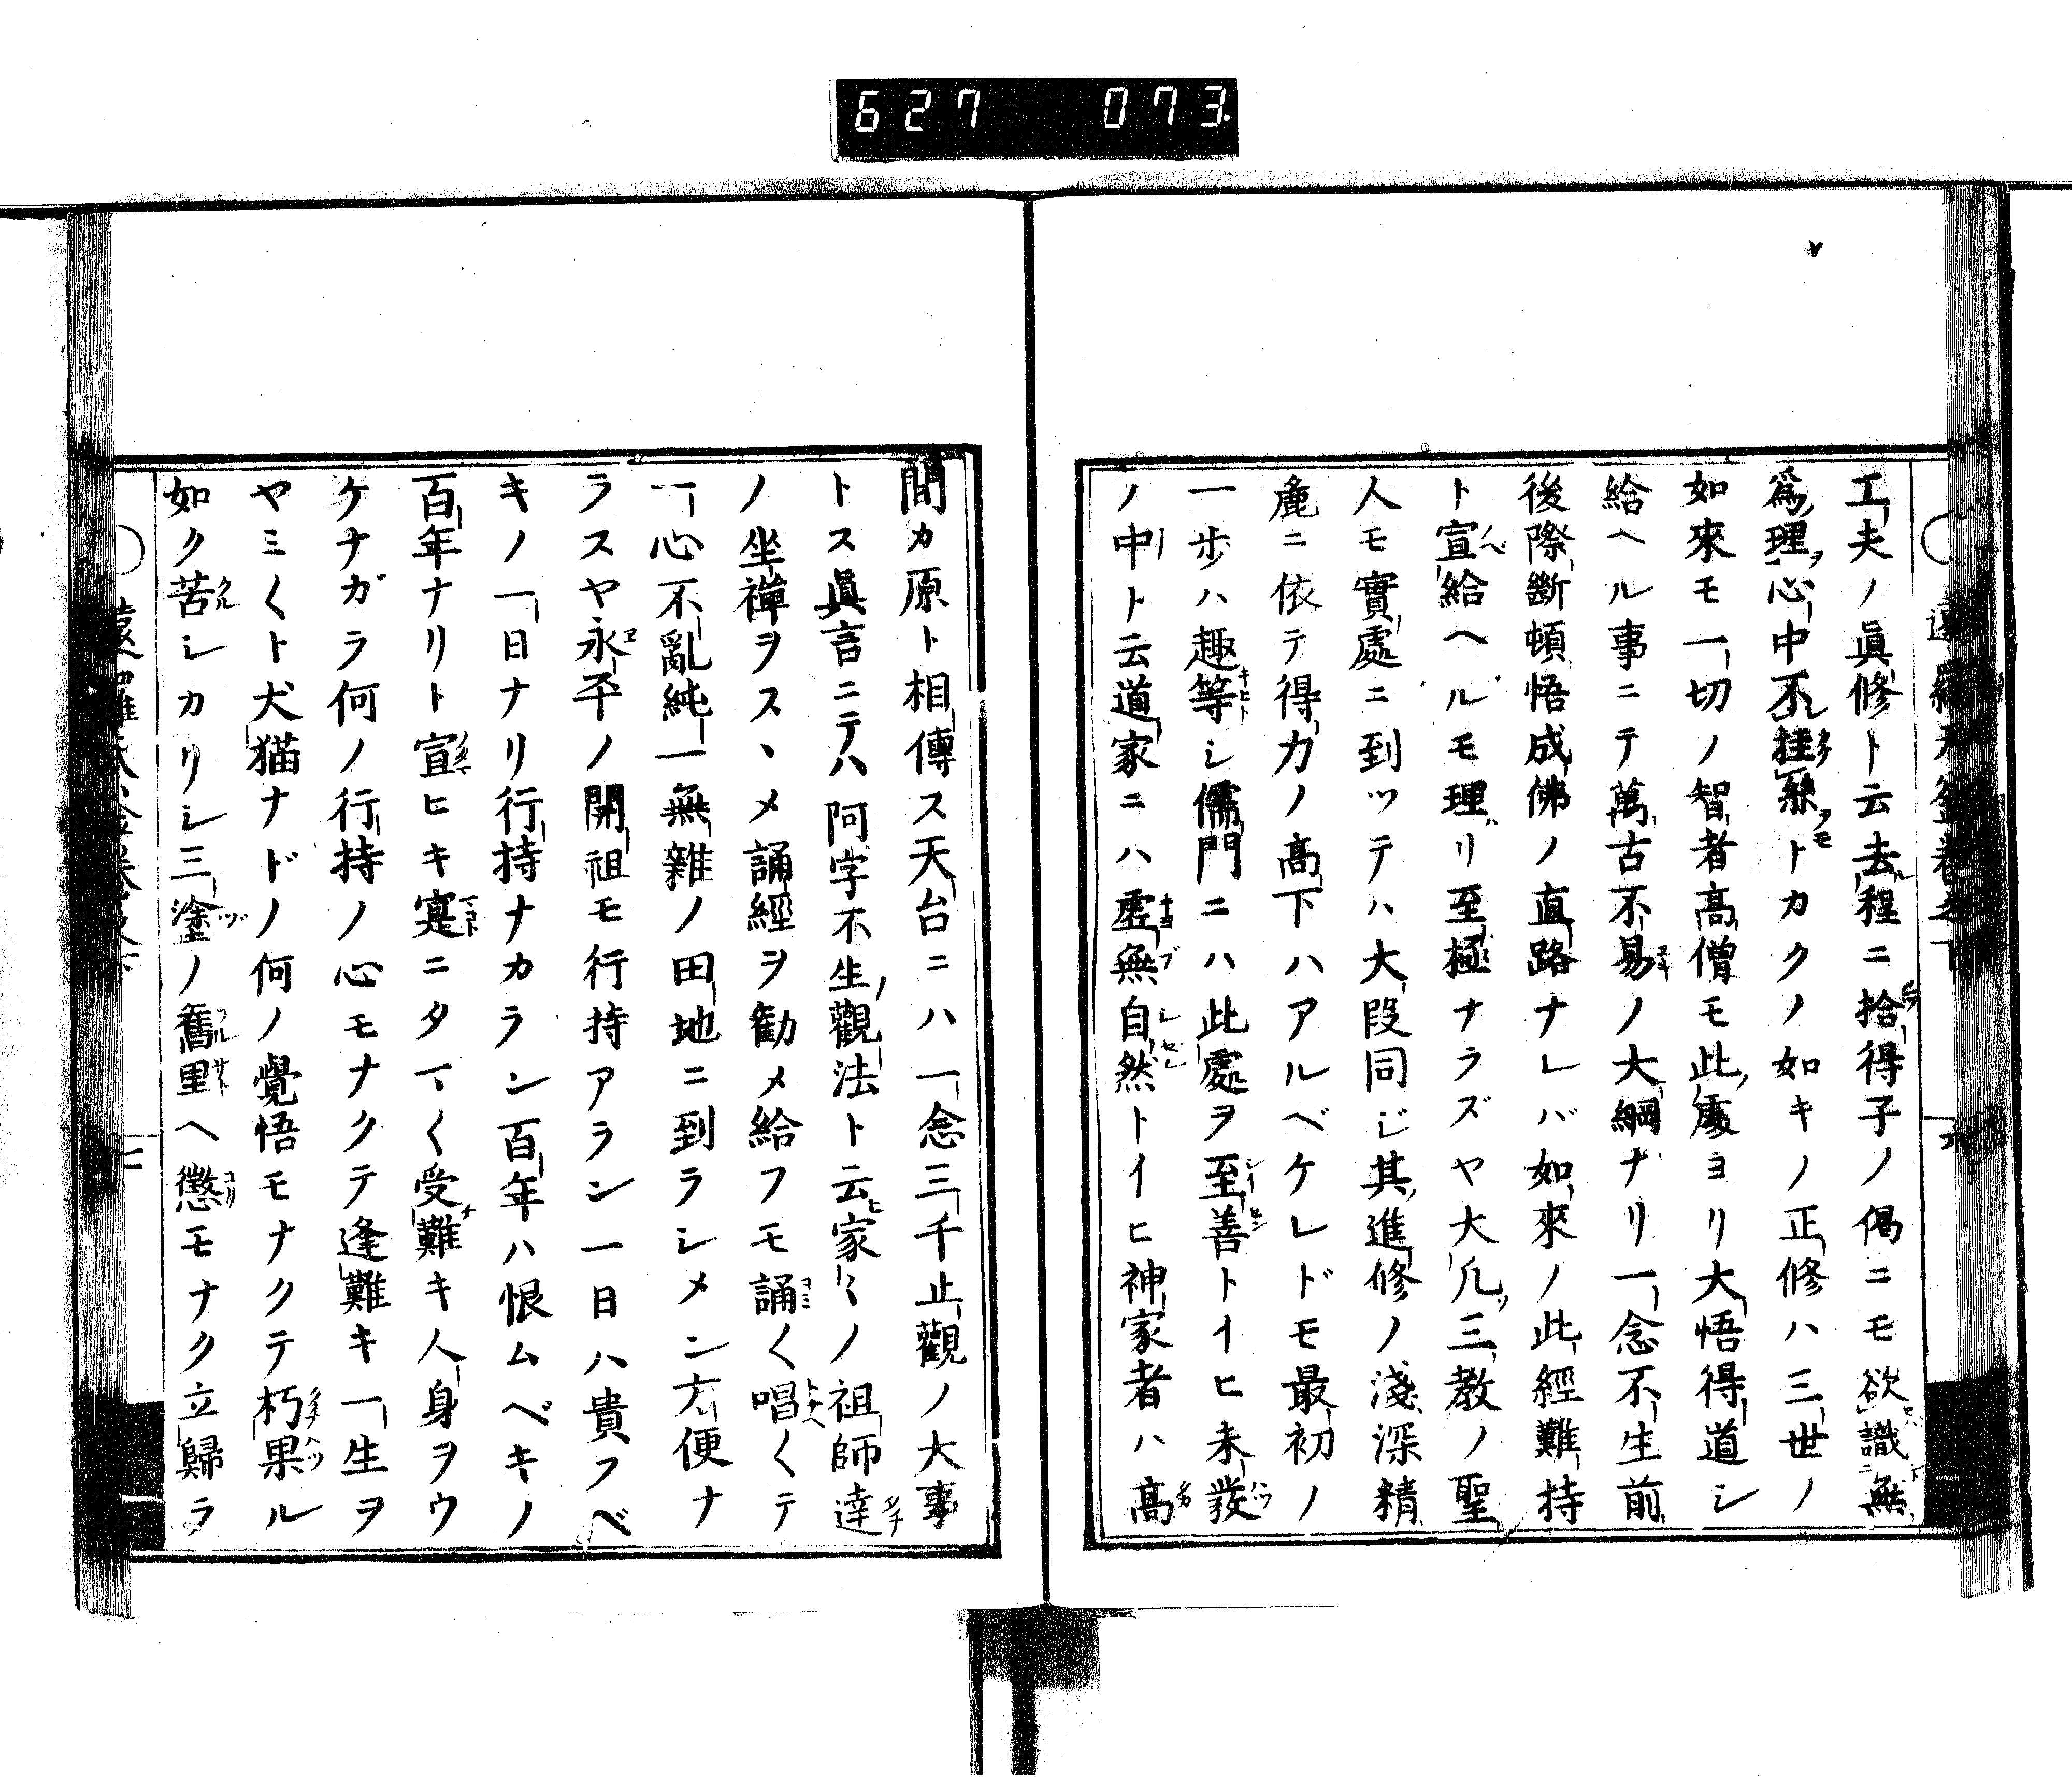 627 073
工夫ノ眞修ト云去程ニ拾得子ノ偈ニモ欲識無
爲理心中不挂絲トカクノ如キノ正修ハ三世ノ
如來モ一切ノ智者高僧モ此處ヨリ大悟得道シ
給ヘル事ニテ萬古不易ノ大綱ナリ一念不生前
後際斷頓悟成佛ノ直路ナレバ如來ノ此經難持
ト宣給ヘルモ理リ至極ナラズヤ大凡三教ノ聖
人モ實處ニ到ツテハ大段同ジ其進修ノ淺深精
麁ニ依テ得力ノ高下ハアルベケレドモ最初ノ
一歩ハ趣等シ儒門ニハ此處ヲ至善トイヒ未發
ノ中ト云道家ニハ虚無自然トイヒ神家者ハ高
間カ原ト相傳ス天台ニハ一念三千止觀ノ大事
トス眞言ニテハ阿字不生ノ觀法ト云家〻ノ祖師達
ノ坐禪ヲスヽメ誦經ヲ勧メ給フモ誦〱唱〱テ
一心不亂純一無雜ノ田地ニ到ラシメン方便ナ
ラスヤ永平ノ開祖モ行持アラン一日ハ貴フベ
キノ一日ナリ行持ナカラン百年ハ恨ムベキノ
百年ナリト宣ヒキ寔ニタマ〱受難キ人身ヲウ
ケナガラ何ノ行持ノ心モナクテ逢難キ一生ヲ
ヤミ〱ト犬猫ナドノ何ノ覺悟モナクテ朽果ル
如ク苦シカリシ三塗ノ舊里ヘ懲モナク立歸ラ